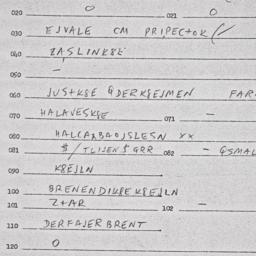 020 0 021 0
030 EJVALE CM PRIPECTOK (/
040 ZASLINKSE
050 –
060 JUSTKSE GDERKSEJMEN FAR
070 HALAVESKSE 071 –
080 XX
081 $/ 082 – GSMAL
090 KSEJLN
100 BRENENDIKSEKSEJLN
101 Z+AR 102 –
110 DERFAJERBRENT
120 0